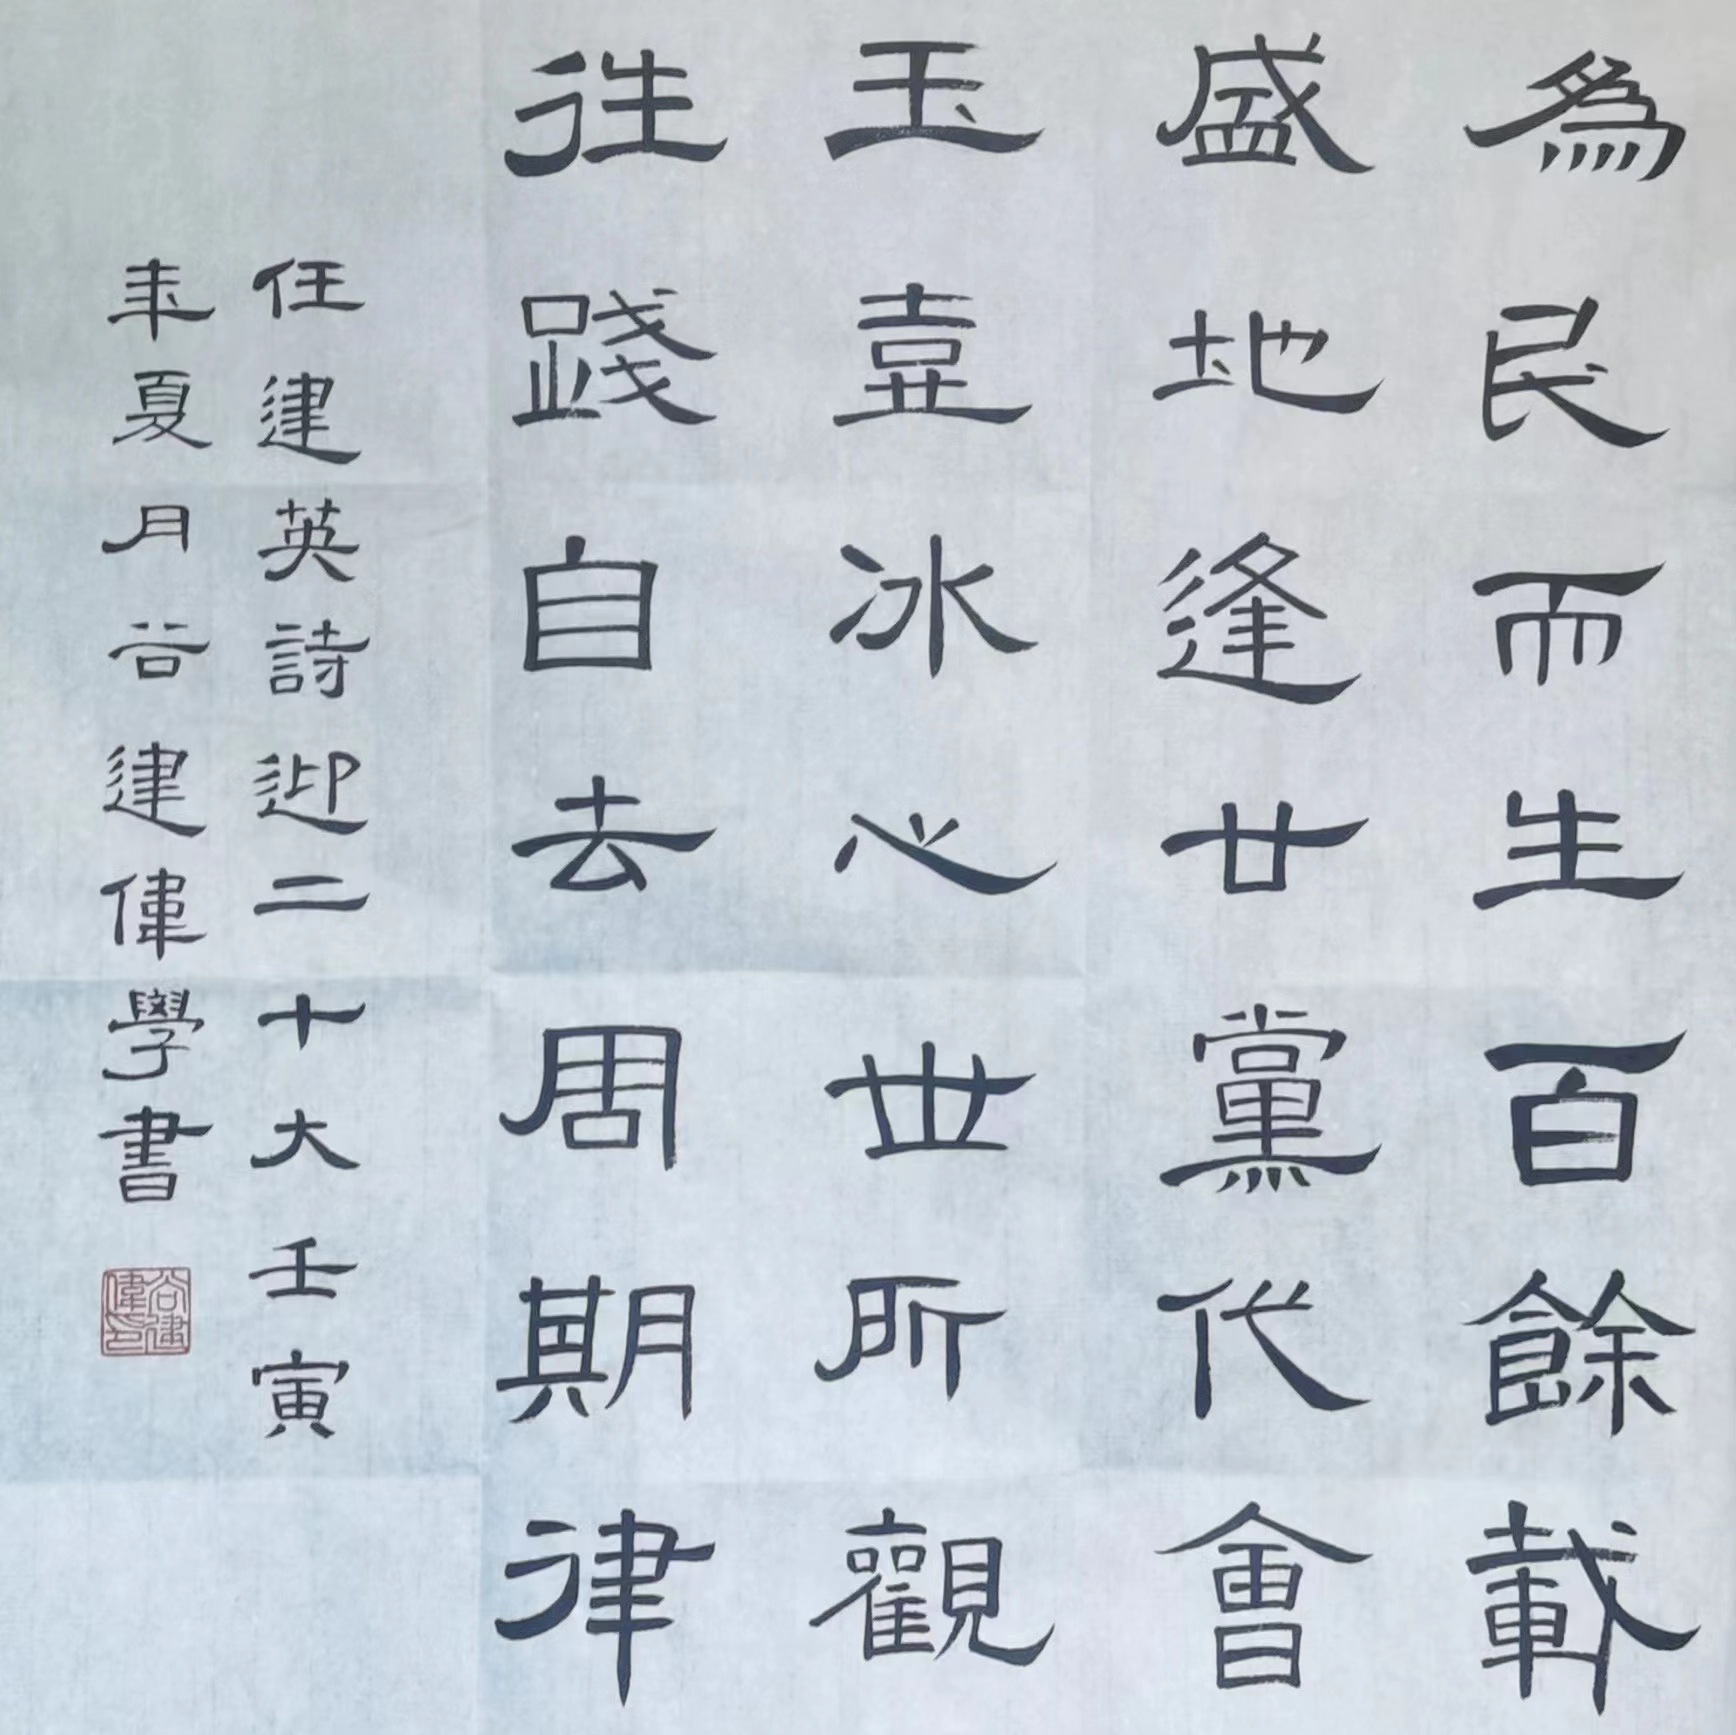 為民而生百餘載
盛地逢廿黨代會
玉壼冰心世所觀
往踐自去周期律
任建英詩迎二十大壬寅
年夏月谷建偉學書
谷建偉印